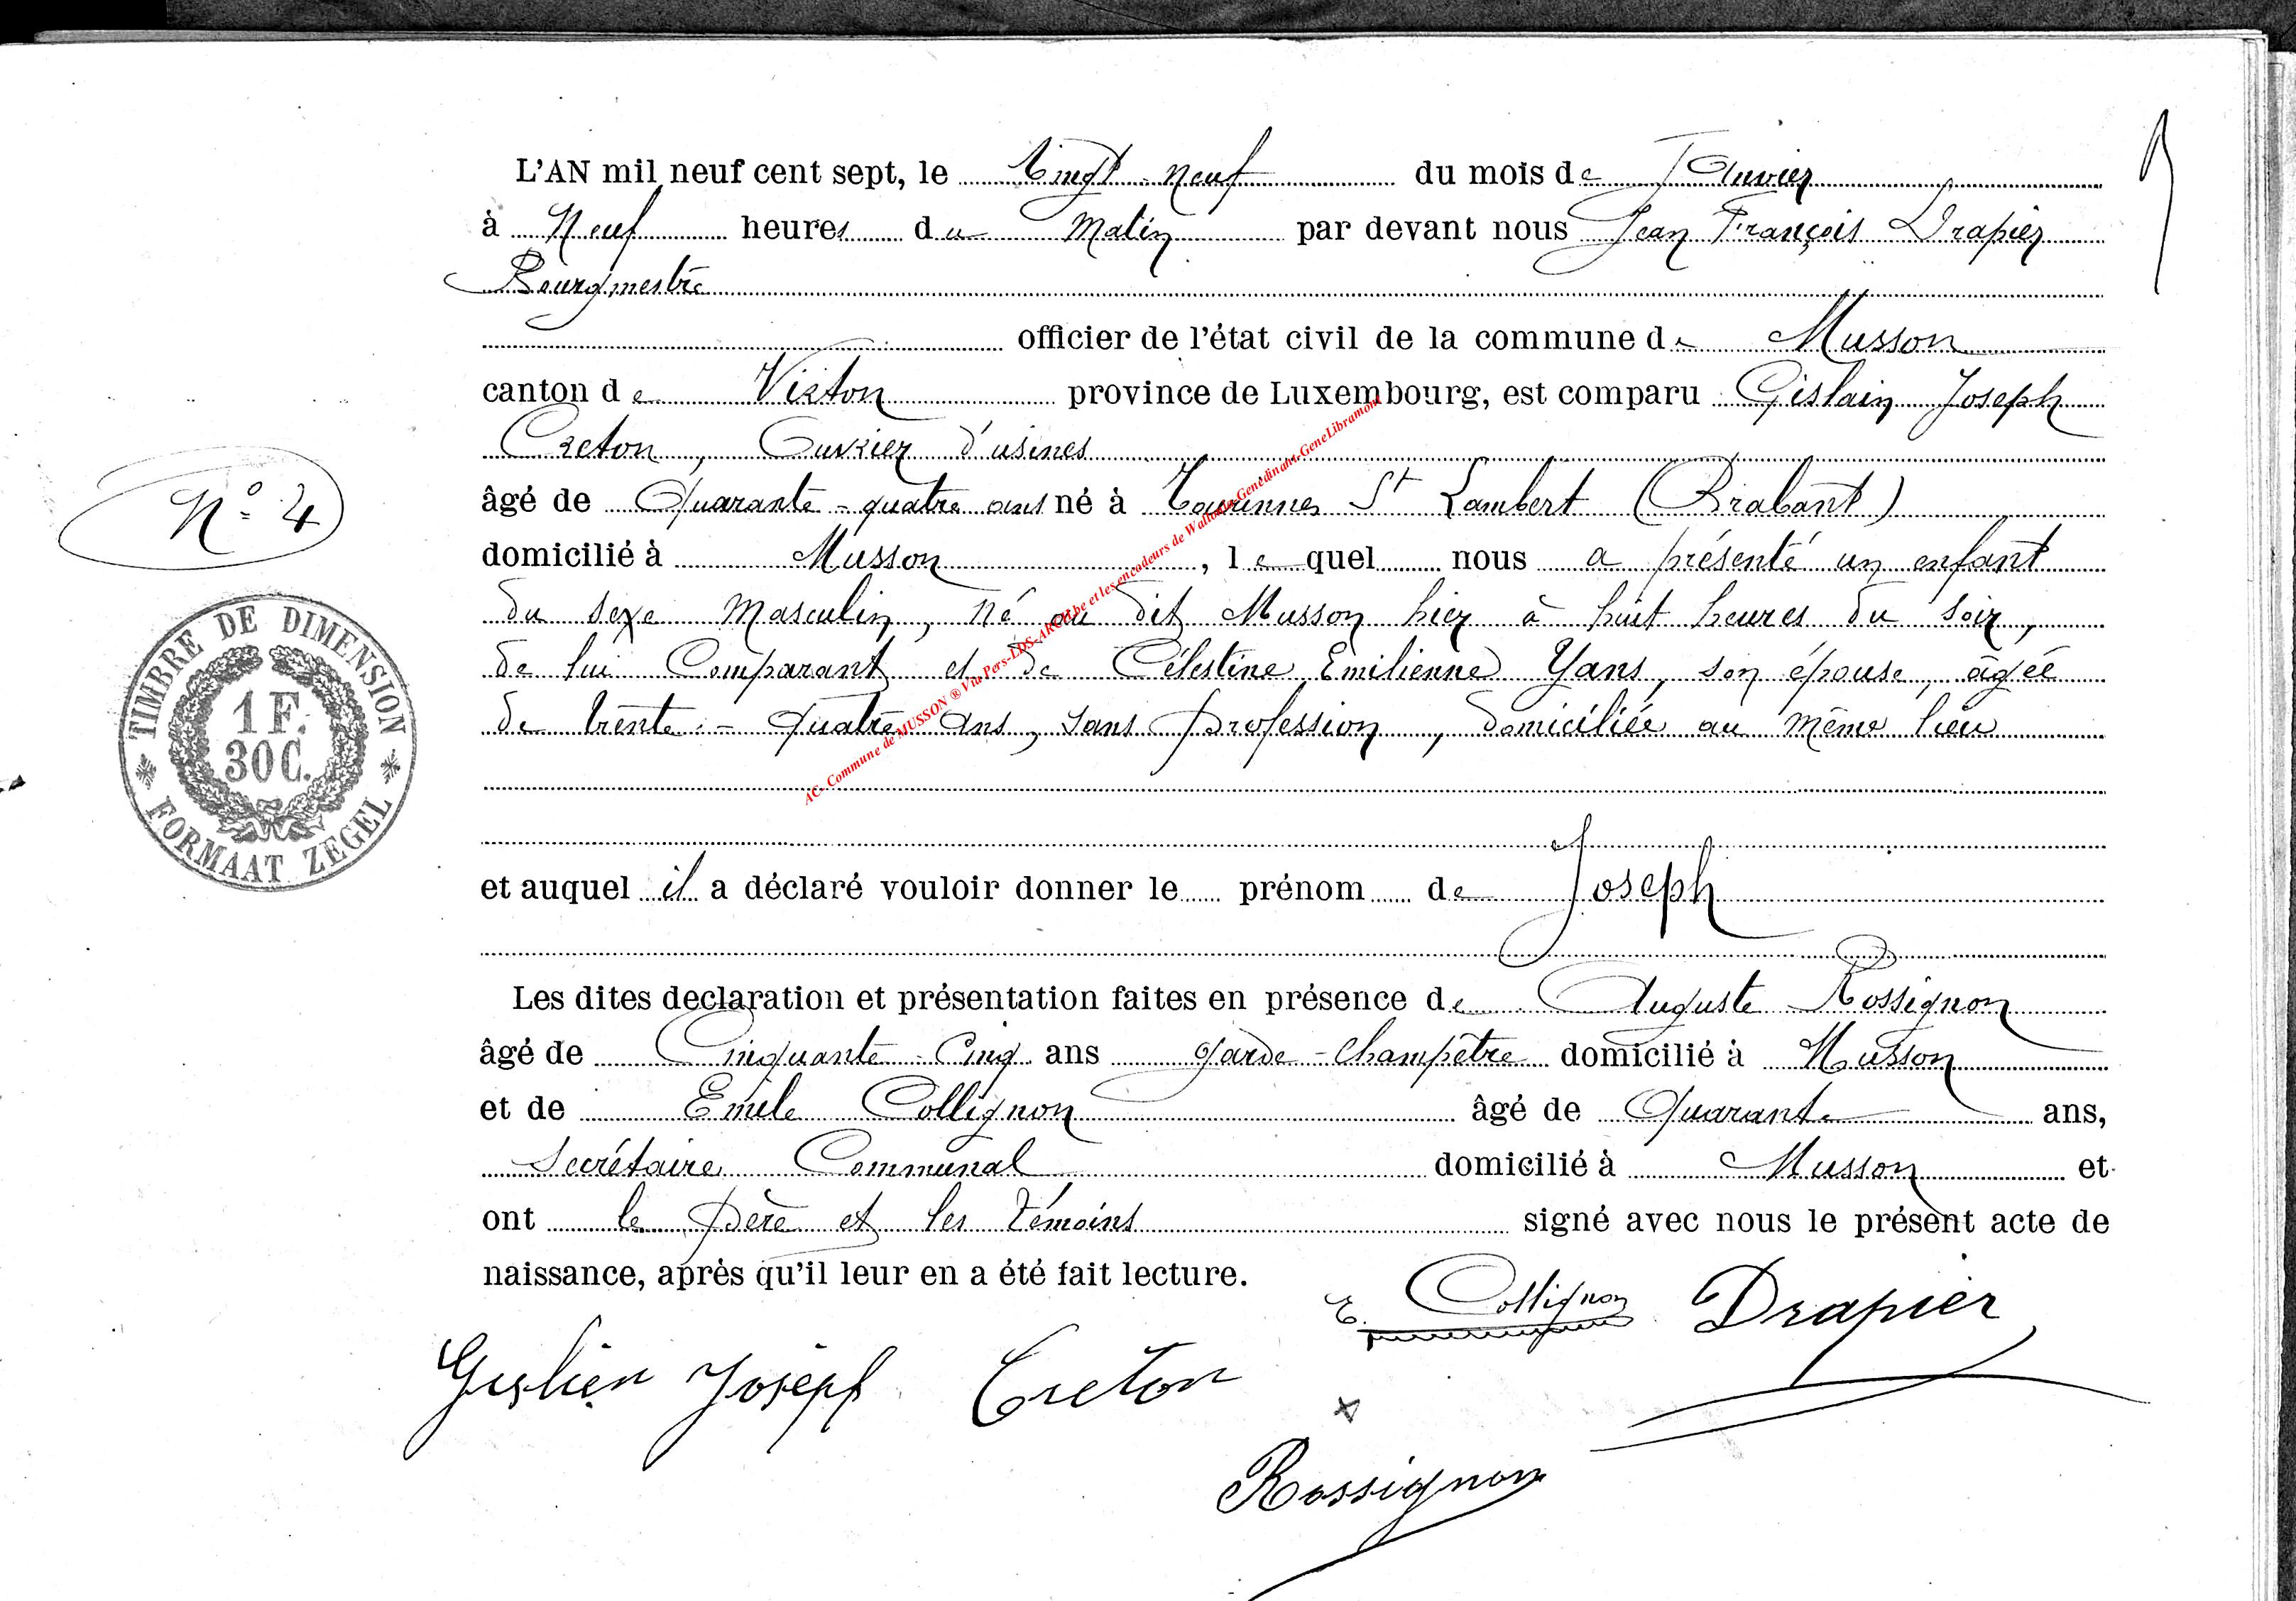 L'AN mil neuf cent sept, le Vingt-neuf du mois de Janvier
à Neuf heures du Matin par devant nous Jean François Drapier
Bourgmestre
officier de l'état civil de la commune de Musson
canton de Virton province de Luxembourg, est comparu Gislain Joseph
Creton, Ouvrier d'usines
âgé de Quarante-quatre ans né à Tourinnes St Lambert (Brabant)
N° 4
domicilié à Musson, lequel nous a présenté un enfant
du sexe Masculin, né au dit Musson hier à huit heures du soir,
de lui Comparant et de Célestine Emilienne Yans, son épouse, âgée
de trente-quatre ans, sans profession, domiciliée au même lieu
TIMBRE DE DIMENSION
1 F.
30 C.
FORMAAT ZEGEL
AC- Commune de MUSSON ® Via Pers-LDS-ARCH.be et les encodeurs de Wallonie-Genedinant-GeneLibramont
et auquel il a déclaré vouloir donner le prénom de Joseph
Les dites declaration et présentation faites en présence de Auguste Rossignon
âgé de Cinquante-Cinq ans garde-Champêtre domicilié à Musson
et de Emile Collignon âgé de Quarante ans,
Secrétaire Communal domicilié à Musson et
ont le père et les témoins signé avec nous le présent acte de
naissance, après qu'il leur en a été fait lecture.
E. Collignon Drapier
Gislien Joseph Creton
Rossignon